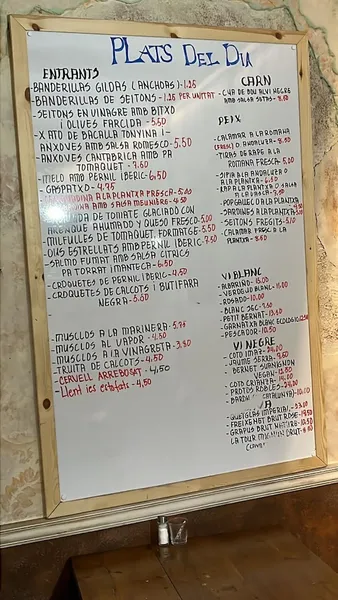 PLATS DEL DIA
ENTRANTS
-BANDERILLAS GILDAS (ANCHOAS)-1.25
-BANDERILLAS DE SEITONS-1.25 PER UNITAT
-SEITONS EN VINAGRE AMB BITXO
I OLIVES FARCIDA -5.50
-XATO DE BACALLA TONYINA I-
ANXOVES AMB SALSA ROMESCO-5.50
-ANXOVES CANTABRICA AMB PA
TOMAQUET-7.60
-MELO AMB PERNIL IBERIC-6.50
-GASPATXO-4.75
A LA PLANTXA FRESCA-5.00
AMB SALSA MEUNIÈRE-4.50
DE TOMATE GLACIADO CON
ARENQUE AHUMADO Y QUESO FRESCO-5.00
-MILFULLES DE TOMAQUET, FORMATGE-5.50
-OUS ESTRELLATS AMB PERNIL IBERIC-7.50
-SALMO FUMAT AMB SALSA CITRICS
PA TORRAT I MANTECA-6.50
-CROQUETES DE PERNIL IBERIC-4.50
-CROQUETES DE CALCOTS I BUTIFARA
NEGRA-5.00
-MUSCLOS A LA MARINERA-5.75
-MUSCLOS AL VAPOR-4.50
-MUSCLOS A LA VINAGRETA-3.50
-TRUITA DE CALCOTS-4.50
-CERVELL ARREBOSAT-4,50
-Llenties estofats-4,50
CARN
DE BOU ALVI NEGRE
AMB SALSA SETAS-8.50
PEIX
-CALAMAR A LA ROMANA
(FRESC) O ANDALUZA-
-TIRAS DE RAPE A LA
ROMANA FRESCA 5.00
-SIPIA A LA ANDALUZA O
A LA PLANTXA-6.50
-RAP A LA PLANTXA O SALSA
-POP GALLEGO A LA PLANXA
-SARDINES A LA PLANTXA
-SEITONS FREGITS-5.00
-CALAMAR FRESCA A LA
PLANXA-8.50
VI BLANC
-ALBARIÑO-15.00
-VERDEJO BLANC-11.00
-ROSADO-10.00
-BLANC SEC-
-PETIT BERNAT-13.50
-GARNATXA BLANC ECOLOGIC
-PESCADOR-10.50
VI NEGRE
-COTO IMAZ-24.00
-JAUME SERRA-
VEGAN-12.50
-COTO CRIANZA-14.00
-PROTOS ROBLES-24.00
-BARON CATALUNYA)-10.00
IMPERIAL-33.00
-FREIXENET BRUT ROSE-
-GRAPUS BRUT NATURE-10.50
-LA TOUR BRUT-